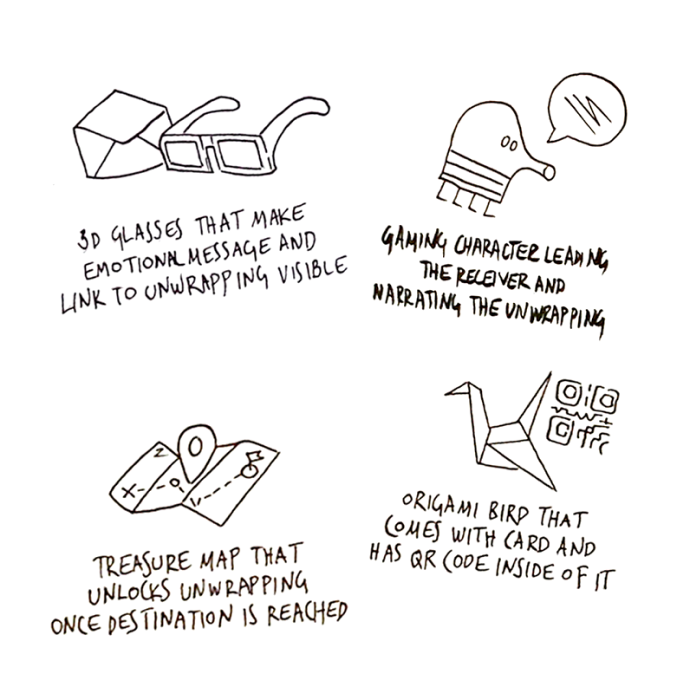 3D GLASSES THAT MAKE
EMOTIONAL MESSAGE AND
LINK TO UNWRAPPING VISIBLE
GAMING CHARACTER LEADING
THE RECEIVER AND
NARRATING THE UNWRAPPING
TREASURE MAP THAT
UNLOCKS UNWRAPPING
ONCE DESTINATION IS REACHED
ORIGAMI BIRD THAT
COMES WITH CARD AND
HAS QR CODE INSIDE OF IT